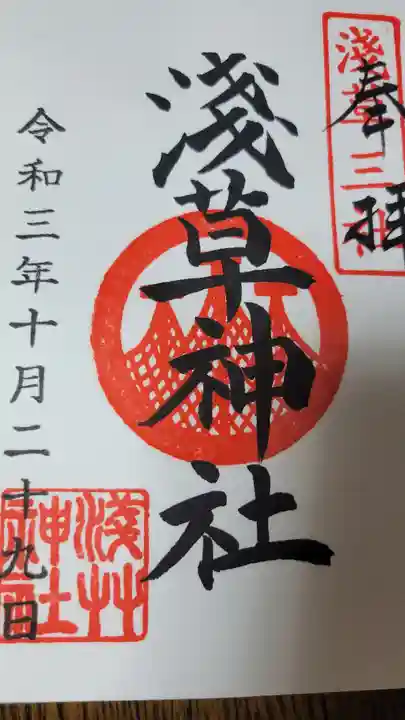 奉拝
淺草三社
淺草神社
令和三年十月二十九日
淺草神社